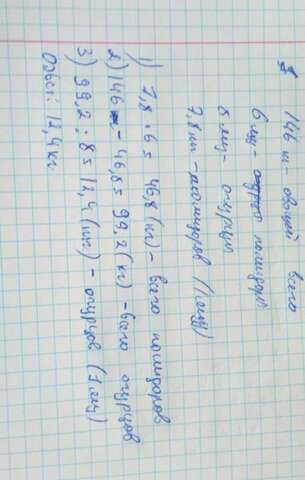 146 кг - овощей всего
6 ящ - помидор
8 ящ - огурцов
7,8 кг - помидоров (1 ящ)
1) 7,8 · 6 = 46,8 (кг) - всего помидоров
2) 146 - 46,8 = 99,2 (кг) - всего огурцов
3) 99,2 : 8 = 12,4 (кг) - огурцов (1 ящ)
Ответ: 12,4 кг